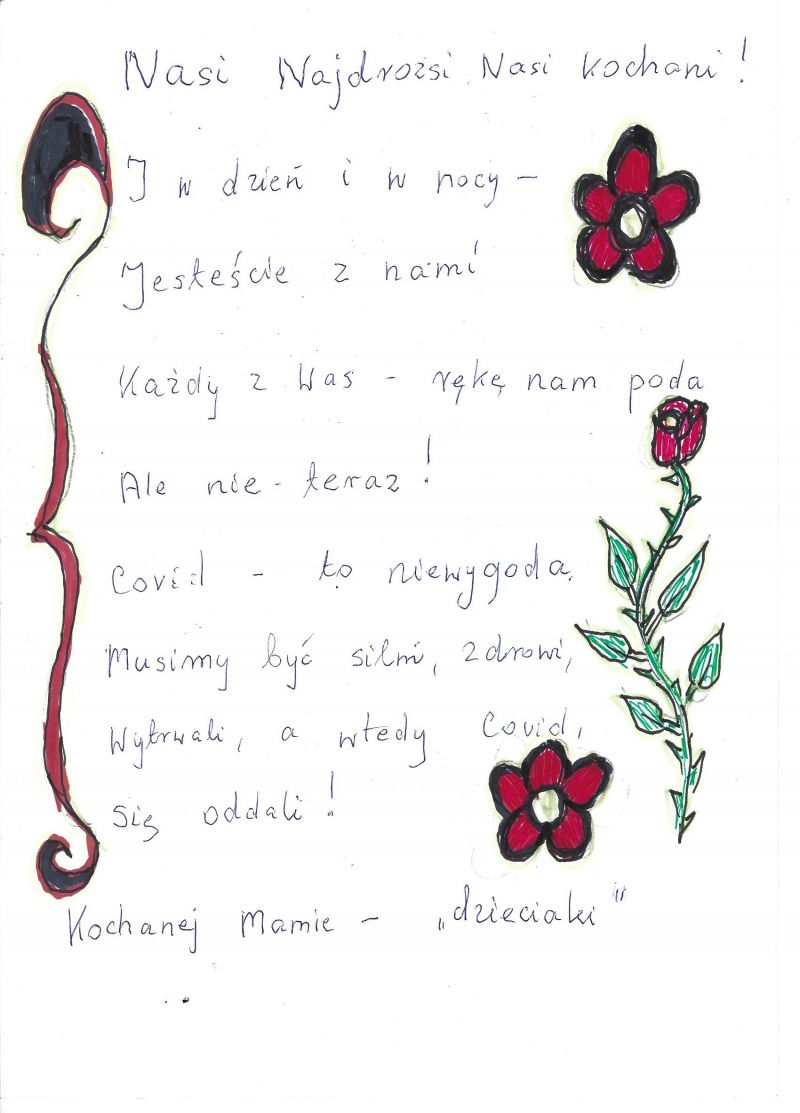 Nasi Najdrożsi Nasi kochani!
I w dzień i w nocy -
Jesteście z nami
Każdy z Was - rękę nam poda
Ale nie - teraz!
Covid - to niewygoda.
Musimy być silni, zdrowi,
Wytrwali, a wtedy Covid,
się oddali!
Kochanej Mamie - „dzieciaki"